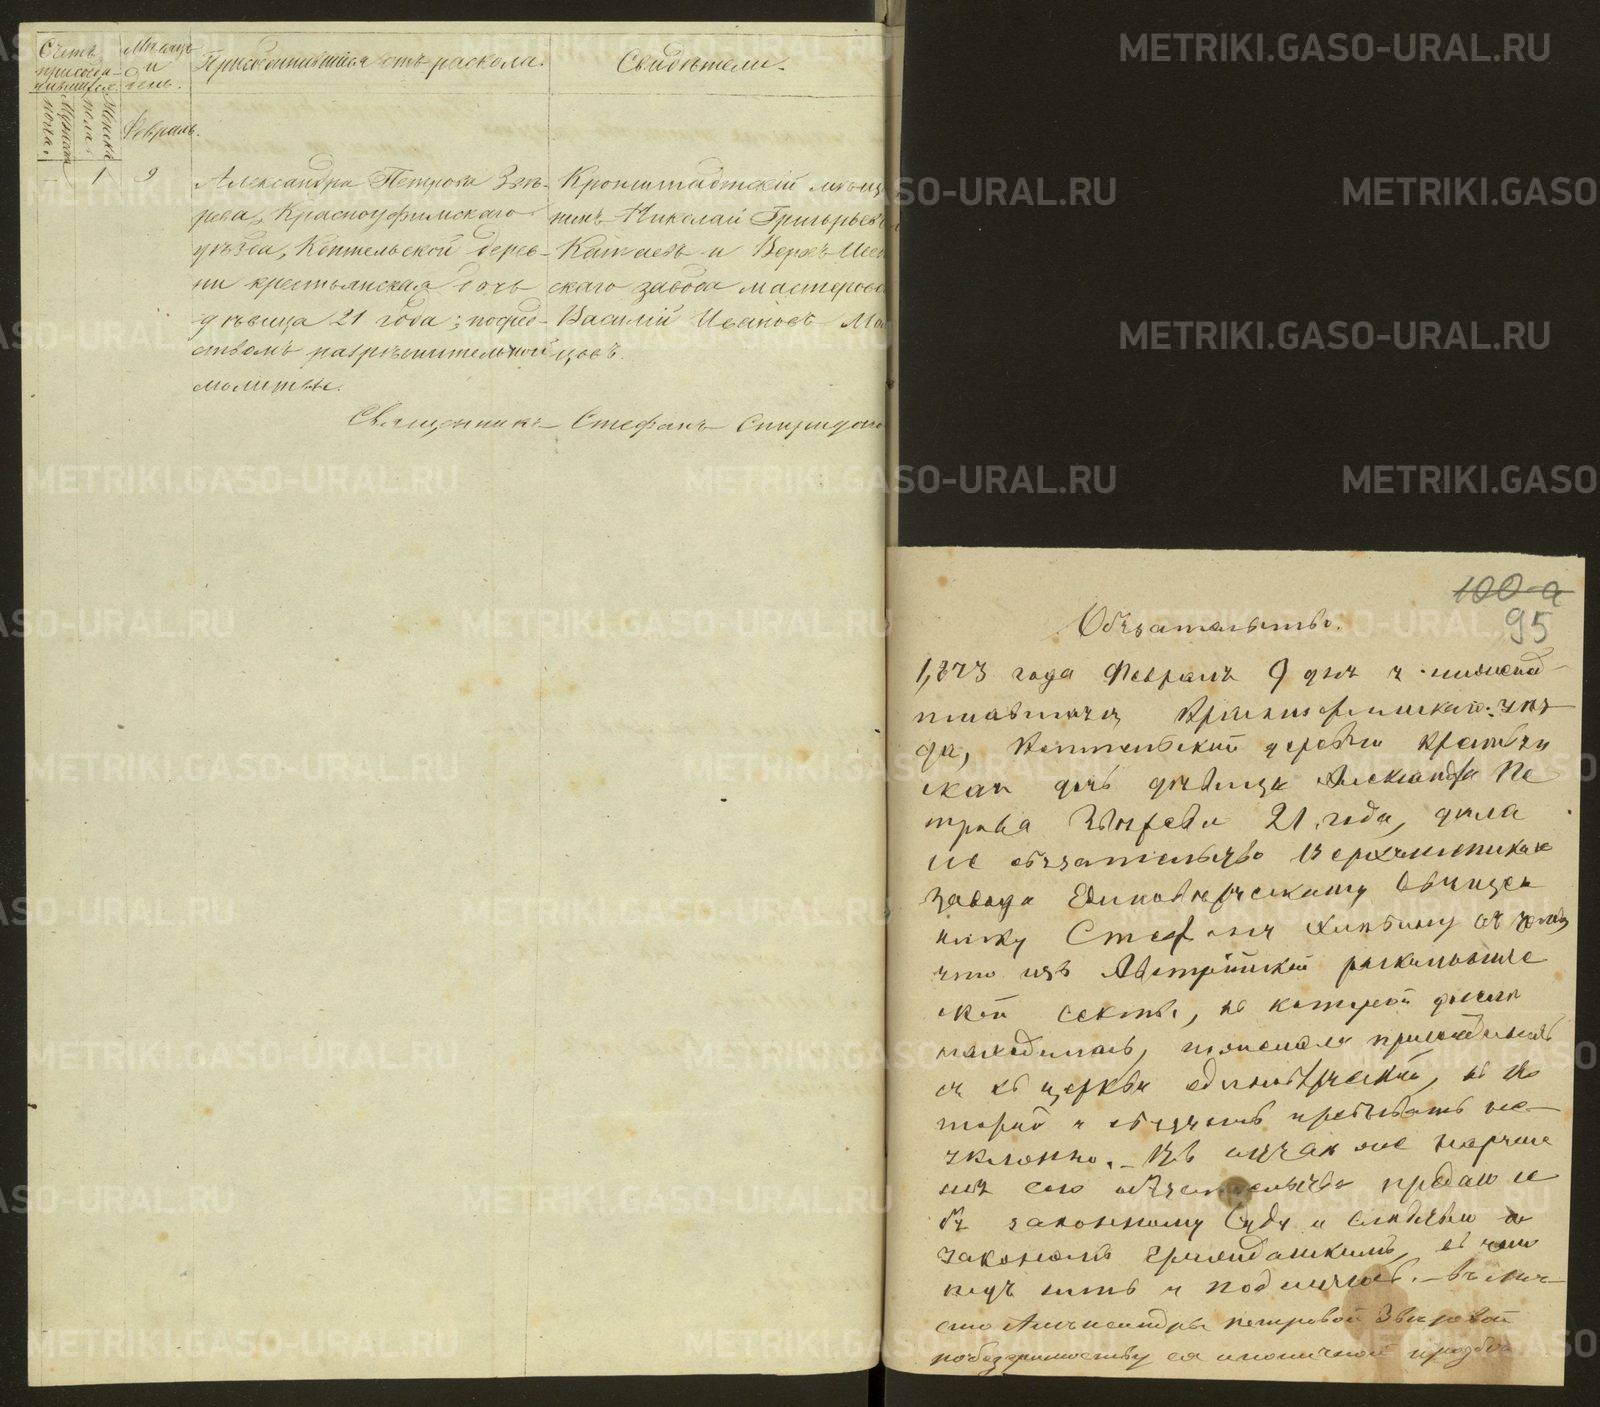 Счетъ присоеди-
нившихся.
Мужеска
пола.
Женска
пола.
Мѣсяцъ
и
день.
Присоединившіяся отъ раскола.
Свидѣтели.
Февраль.
1 9
Александра Петрова Звѣ-
рева, Красноуфимскаго
уѣзда, Коптельской дерев-
ни крестьянская дочь
дѣвица 21 года; посред-
ствомъ разрѣшительной
молитвы.
Кронштадтскій мѣщ
нинъ Николай Григорьев
Катаевъ и Верхъ-Исе
скаго завода мастерово
Василій Ивановъ
цовъ.
Священникъ Стефанъ Спиридоно
100-а
95
Обязательство.
1873 года Февраля 9 дня я нижепод-
писавшаяся Красноуфимскаго уѣз
да, Коптельской деревни крестьян
ская дочь дѣвица Александра Пе
трова Звѣрева 21 года, дала
сіе обязательство Верхъисетскаго
завода Единовѣрческому Священ
нику Стефану въ томъ
что изъ Австрійской раскольниче
ской секты, въ которой доселѣ
находилась, пожелала присоединить
ся къ церкви единовѣрческой, въ ко
торой и обязуюсь пребывать не-
уклонно. Въ случаѣ же наруше
нія сего обязательства предаю се
бя законному Суду и слѣдствію по
законамъ гражданскимъ, въ чемъ
подъ симъ и подписуюсь. Вмѣ-
сто Александры Петровой Звѣревой
по безграмотству ея и по личной просьбѣ